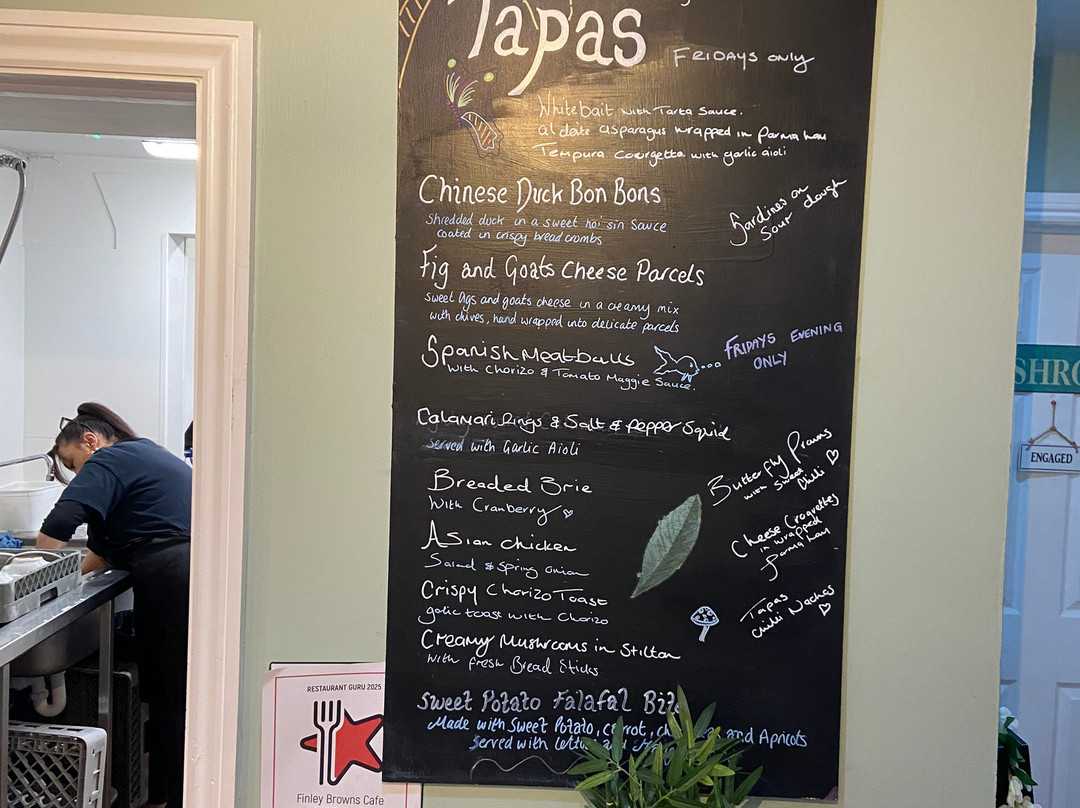 Tapas
FRIDAYS ONLY
Whitebait with Tarta Sauce.
al date asparagus wrapped in Parma ham
Tempura Courgetta with garlic aioli
Chinese Duck Bon Bons
Shredded duck in a sweet hoi sin Sauce
coated in crispy bread crombs
Sardines on
Sour dough
Fig and Goats Cheese Parcels
sweet figs and goats cheese in a creamy mix
with chives, hand wrapped into delicate parcels
Spanish Meatballs
with Chorizo & Tomato Maggie Sauce.
FRIDAYS EVENING
ONLY
Calamari Rings & Salt & Pepper Squid
served with Garlic Aioli
Breaded Brie
With Cranberry
Butterfly Prawns
with Sweet
Chilli
Asian chicken
Salad & Spring Onion
Cheese Croquettes
in wrapped
parma ham
Crispy Chorizo Toast
galic toast with Chorizo
Tapas
Chilli Nachos
Creamy Mushrooms in Stilton
with fresh Bread Sticks
Sweet Potato Falafal
Made with Sweet Potato, and Apricots
Served with and
RESTAURANT GURU 2025
Finley Browns Cafe
SHRO
ENGAGED